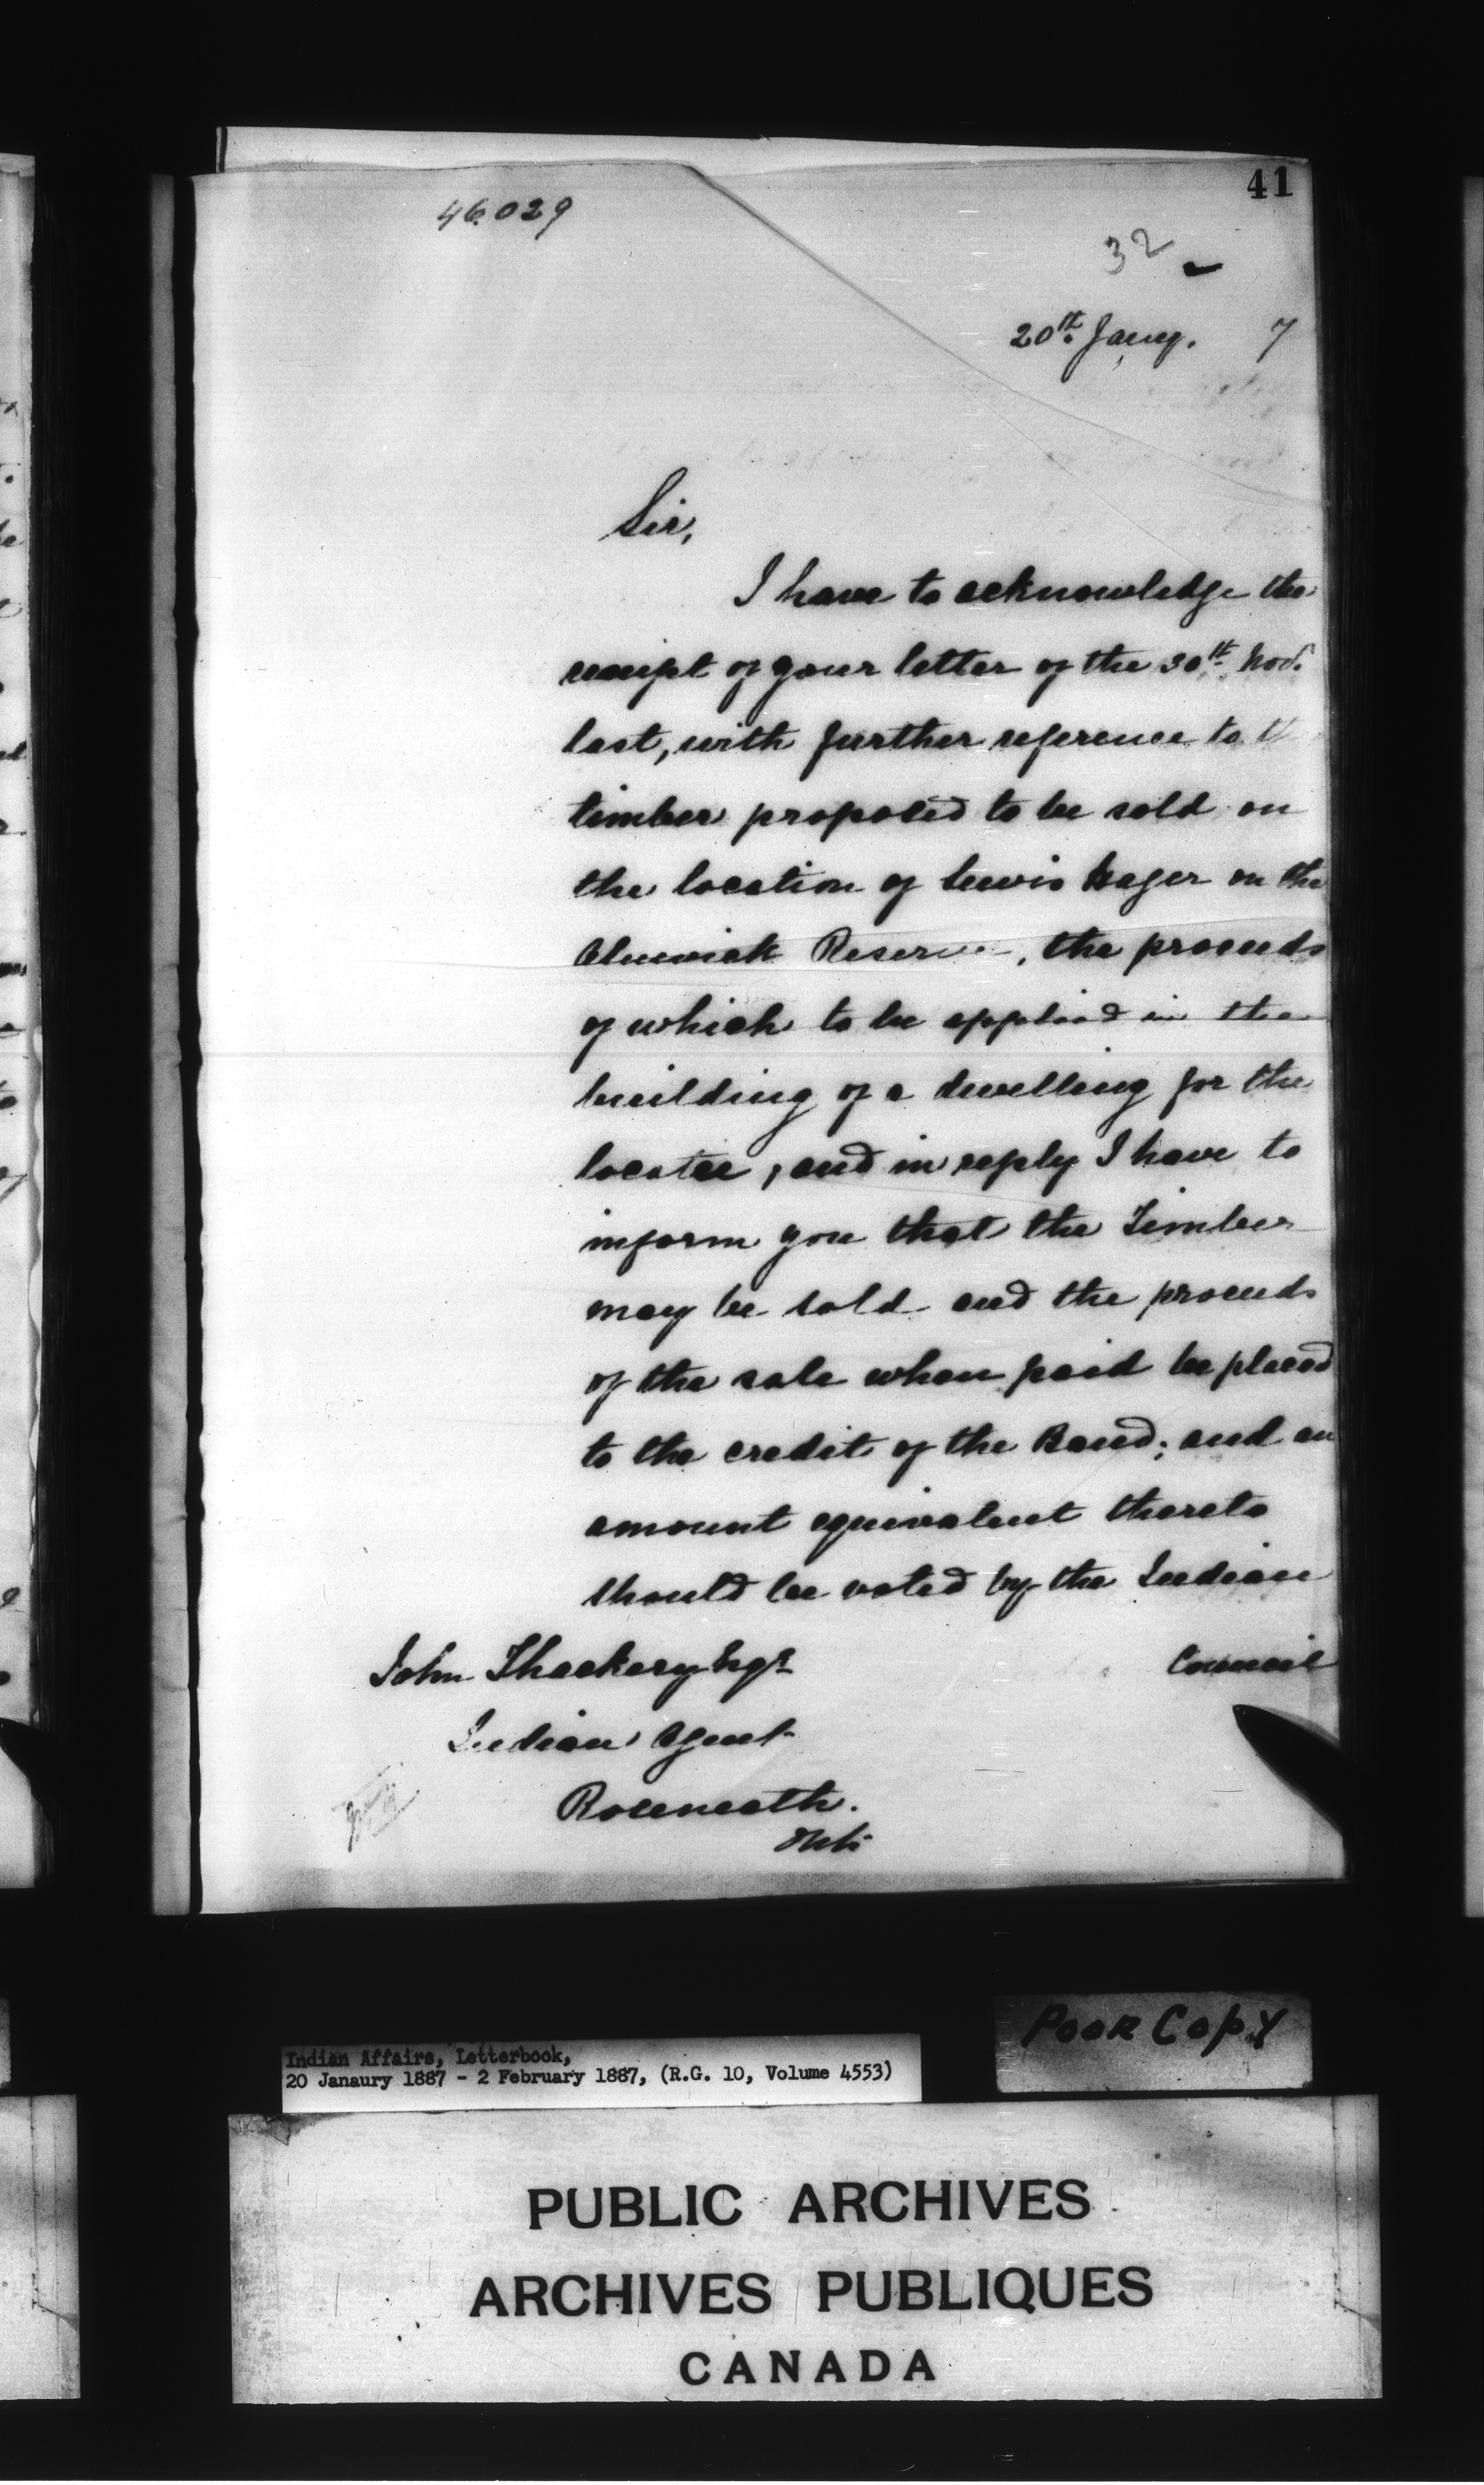 41
46.029
32
20th Jany. 7
Sir,
I have to acknowledge the
receipt of your letter of the 30th Nov.
last, with further reference to t
timber proposed to be sold on
the location of Lewis Hager on the
Alnwick Reserve, the proceeds
of which to be applied in the
building of a dwelling for the
locatee, and in reply I have to
inform you that the Timber
may be sold and the proceeds
of the sale when paid be placed
to the credit of the Band; and an
amount equivalent thereto
should be voted by the Indian
Council
John Thackery Esqr
Indian Agent
Roseneath.
Ont:
Poor Copy
Indian Affairs, Letterbook,
20 Janaury 1887 - 2 February 1887, (R.G. 10, Volume 4553)
PUBLIC ARCHIVES
ARCHIVES PUBLIQUES
CANADA